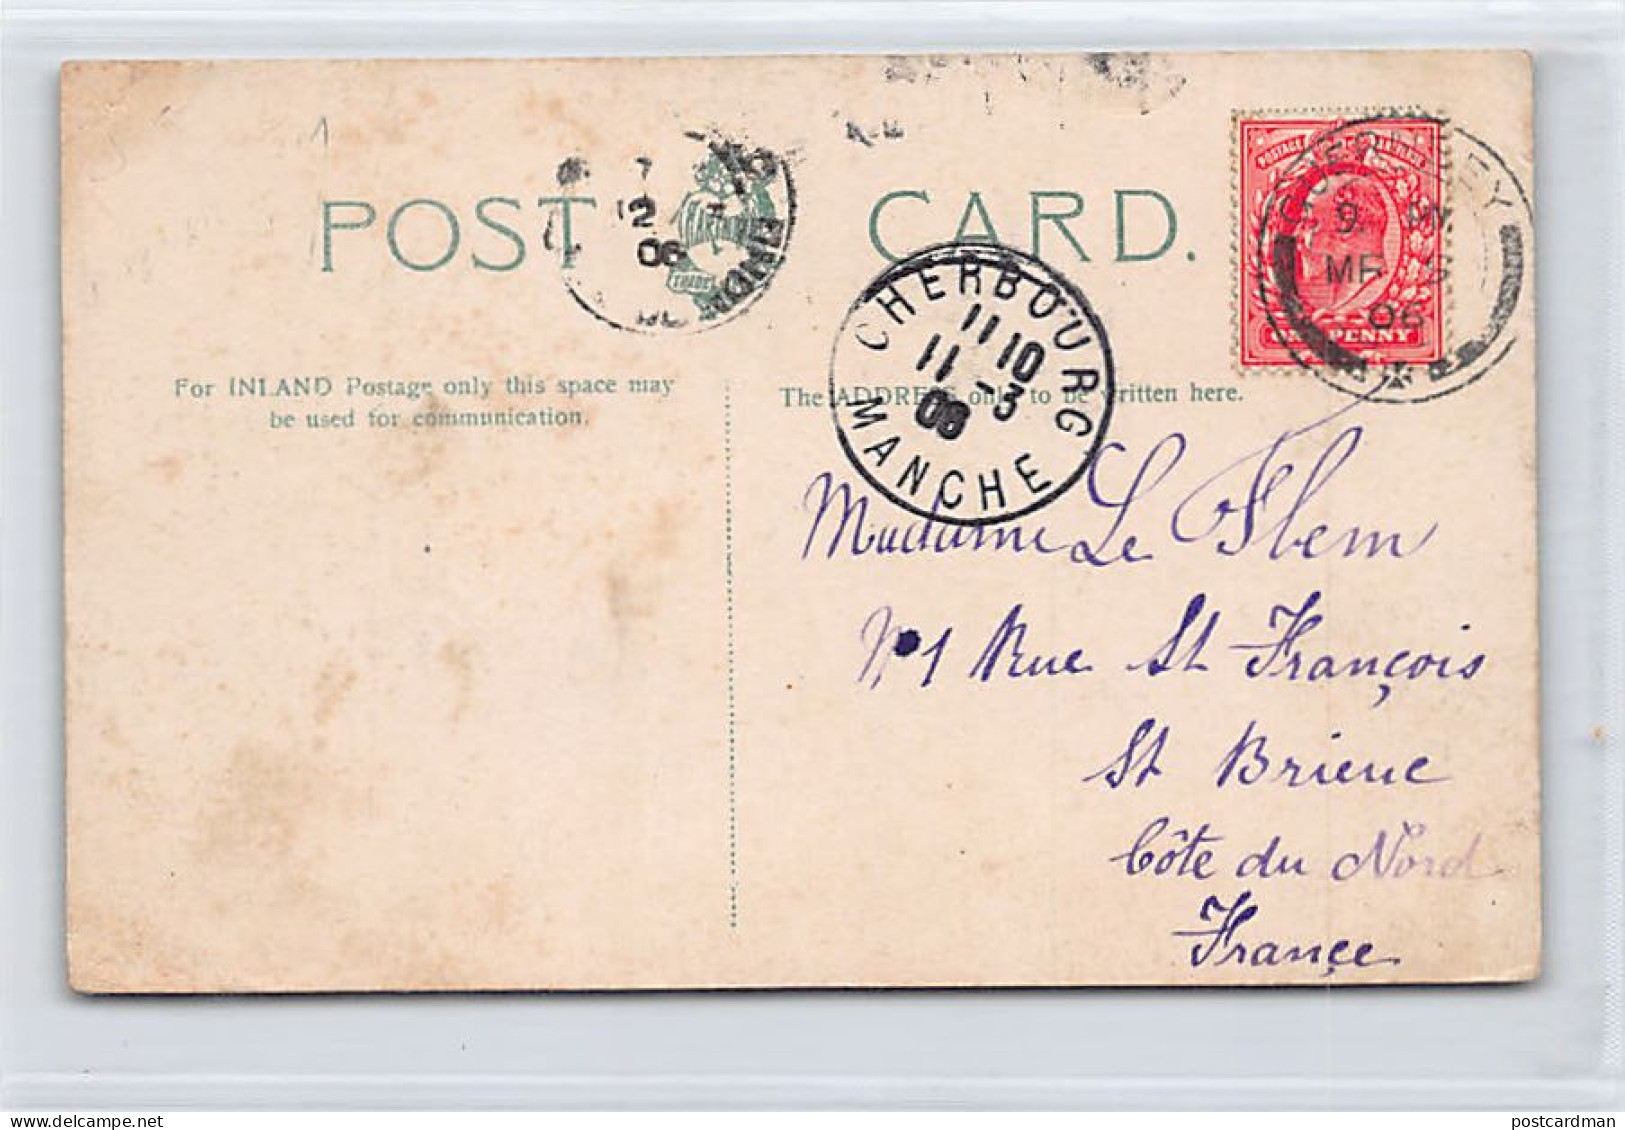 POST CARD.
For INLAND Postage only this space may
be used for communication.
The ADDRESS only to be written here.
POSTAGE
ONE PENNY
GUERNSEY
9
MR
06
CHERBOURG
11 10
11 -3
06
MANCHE
2
06
TRADE
Madame Le
N°1 Rue St François
St Brieuc
Côte du Nord
France
postcardman